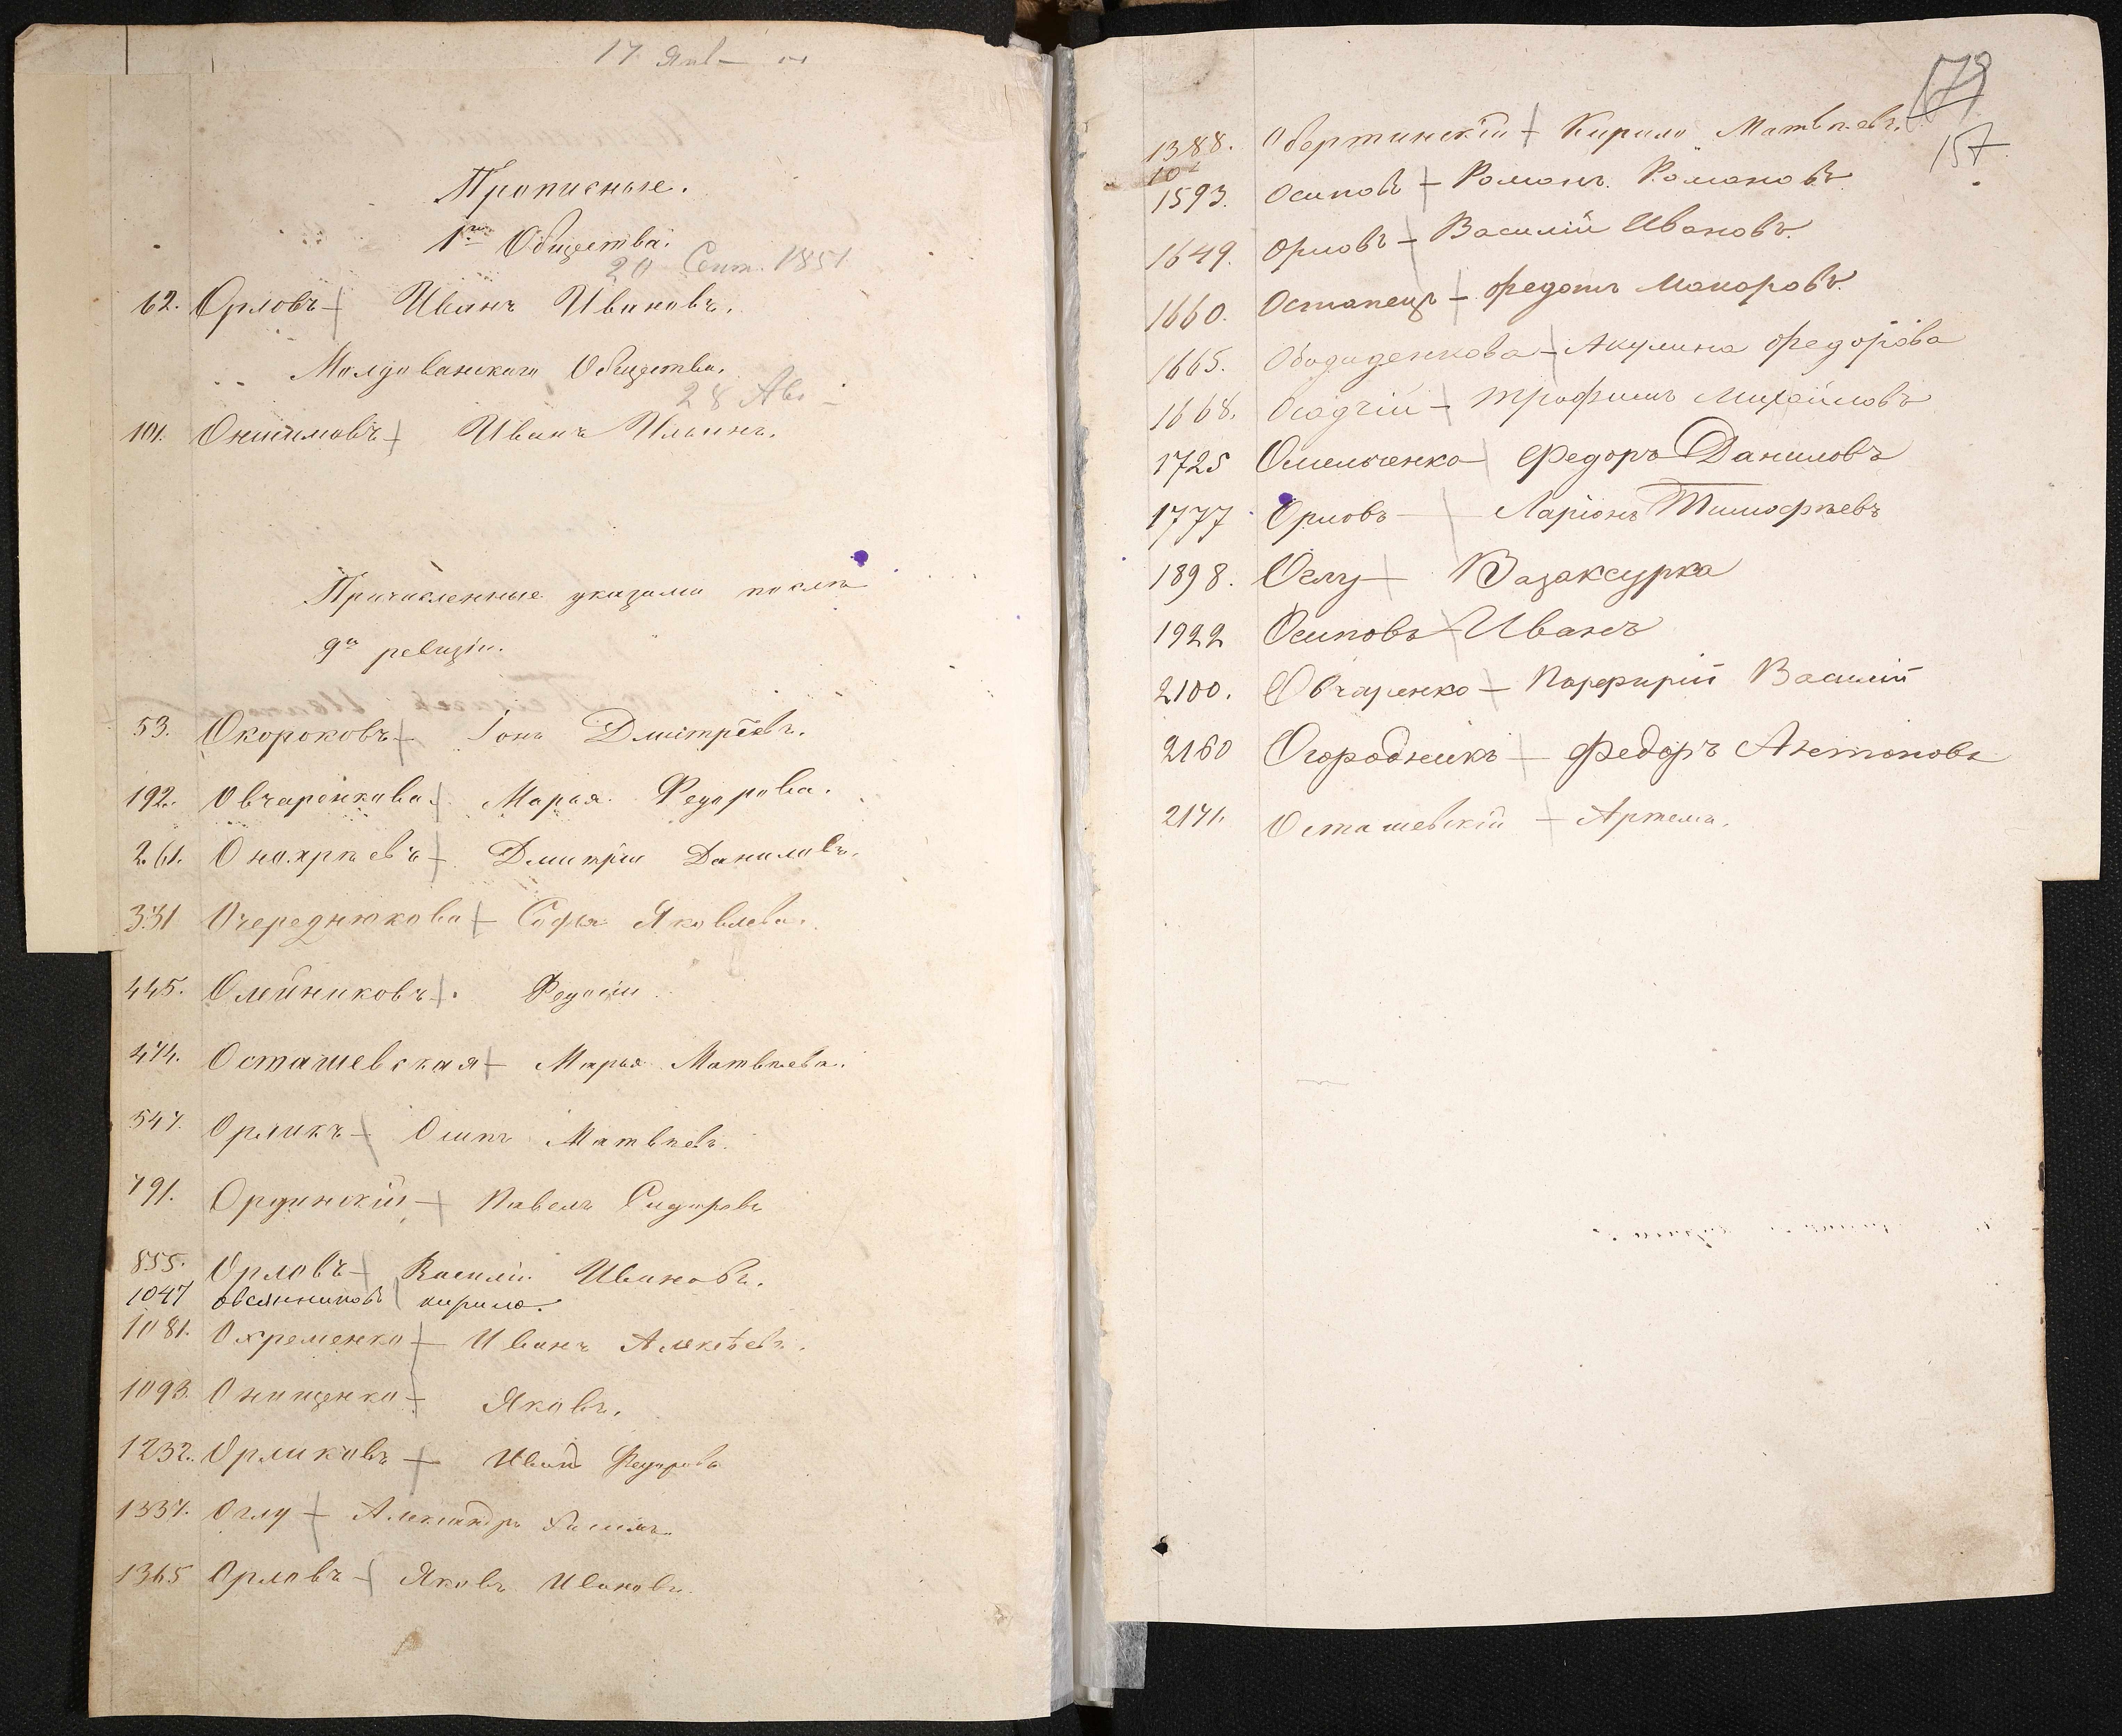 17 Янв
Прописные.
1го Общества.
20 Сент. 1851
62. Орловъ Иванъ Ивановъ.
Молдованскаго Общества.
28 Авг
101. Онисимовъ Иванъ Ильинъ.
Причисленные указами послѣ
9й ревизіи.
53. Окороковъ Іонъ Дмитріевъ.
192. Овчаренкова Марья Федорова.
261. Онохрѣевъ Дмитрій Даниловъ.
331 Очереднюкова Софья Яковлева.
445. Олейниковъ Федосій
474. Осташевская Марья Матвѣева.
547. Орликъ Осипъ Матвѣевъ.
791. Ордынскій Павелъ Сидоровъ
855. Орловъ Василій Ивановъ.
1047 Овсянниковъ Кирило.
1081. Охременко Иванъ Алексѣевъ.
1093. Онищенко Яковъ.
1232. Орликовъ Иванъ Федоровъ
1337. Оглу Александръ
1365 Орловъ Яковъ Ивановъ.
179
157
1388. Обертинскій Кирило Матвѣевъ.
1593. Осиповъ Романъ Романовъ
1649. Орловъ Василій Ивановъ.
1660. Остапецъ Федотъ Макаровъ
1665. Акулина Федорова
1668. Осадчій Трофимъ Михайловъ
1725 Омельченко Федоръ Даниловъ
1777 Орловъ Ларіонъ Тимофѣевъ
1898. Оглу
1922 Осиповъ Иванъ
2100. Овчаренко Порфирій Василій
2160 Огородникъ Федоръ Антоновъ
2171. Осташевскій Артемъ.